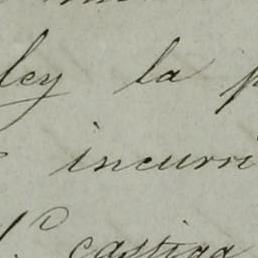 ley la p
incurri
castiga